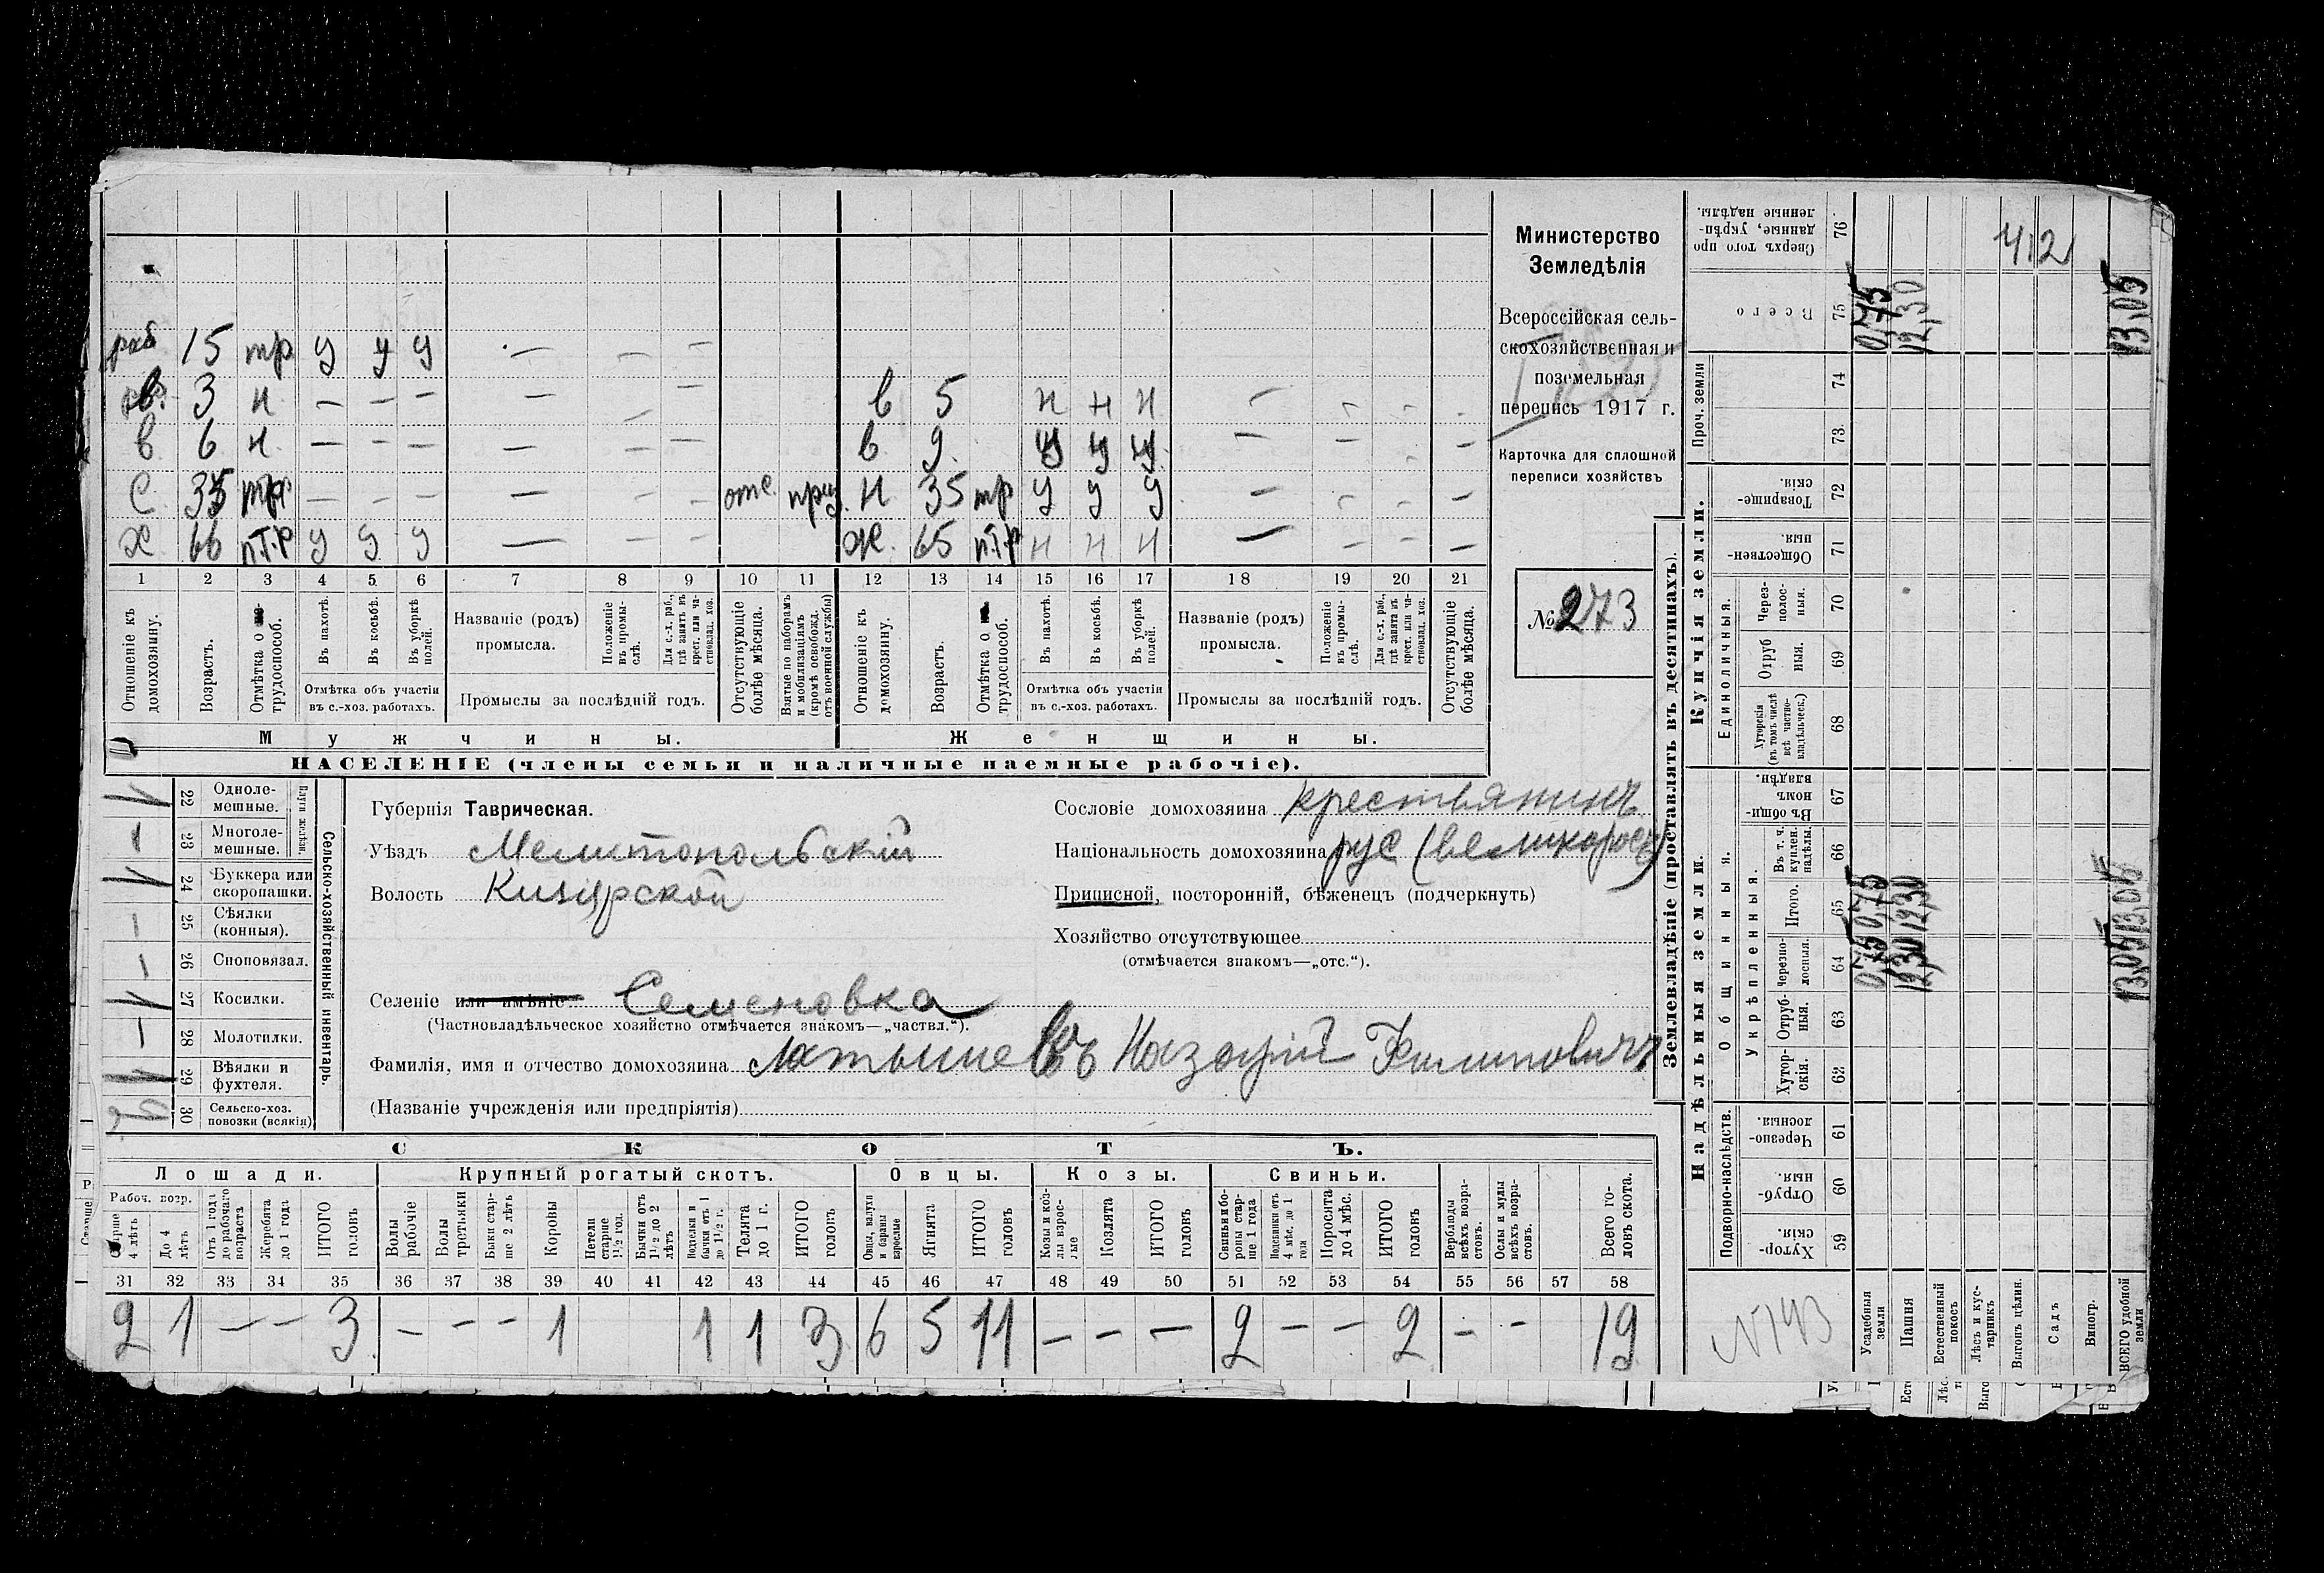 раб 15 тр у у у — — —
3 н — — — — — — в 5 н н н — — — —
в 6 н. — — — — — — в 9. у у у — — —
С. 35 тр — — — — — — отс. приз. Н 35 тр у у у — — — —
Х 66 п.т.р у у у — — — Ж. 65 п.т.р н н н — — — —
1 2 3 4 5 6 7 8 9 10 11 12 13 14 15 16 17 18 19 20 21
Отношеніе къ домохозяину.
Возрастъ.
Отмѣтка о трудоспособ.
Въ пахотѣ.
Въ косьбѣ.
Въ уборкѣ полей.
Отмѣтка объ участіи въ с.-хоз. работахъ.
Названіе (родъ) промысла.
Положеніе въ промыслѣ.
Для с.-х. раб., гдѣ занятъ въ крест. или частновлад. хоз.
Промыслы за послѣдній годъ.
Отсутствующіе болѣе мѣсяца.
Взятые по наборамъ и мобилизаціямъ (кромѣ освобожд. отъ военной службы)
Отношеніе къ домохозяину.
Возрастъ.
Отмѣтка о трудоспособ.
Въ пахотѣ.
Въ косьбѣ.
Въ уборкѣ полей.
Отмѣтка объ участіи въ с.-хоз. работахъ.
Названіе (родъ) промысла.
Положеніе въ промыслѣ.
Для с.-х. раб., гдѣ занята въ крест. или частновлад. хоз.
Промыслы за послѣдній годъ.
Отсутствующіе болѣе мѣсяца.
Мужчины. Женщины.
НАСЕЛЕНІЕ (члены семьи и наличные наемные рабочіе).
Министерство
Земледѣлія
Всероссійская сель-
скохозяйственная и
поземельная
перепись 1917 г.
Карточка для сплошной
переписи хозяйствъ
№ 273
Сельско-хозяйственный инвентарь.
Плуги желѣзн.
22 Однолемешные.
1 23 Многолемешные.
24 Буккера или скоропашки.
— 25 Сѣялки (конныя).
— 26 Сноповязал.
27 Косилки.
— 28 Молотилки.
29 Вѣялки и фухтеля.
30 Сельско-хоз. повозки (всякія)
Губернія Таврическая.
Уѣздъ Мелитопольскій
Волость Кизіярской
Селеніе или имѣніе Семеновка
(Частновладѣльческое хозяйство отмѣчается знакомъ—„частвл.“).
Фамилія, имя и отчество домохозяина Латышевъ Назарій Филиповичъ
(Названіе учрежденія или предпріятія)
Сословіе домохозяина крестьянинъ
Національность домохозяина рус (великороссъ)
Приписной, посторонній, бѣженец (подчеркнуть)
Хозяйство отсутствующее
(отмѣчается знакомъ—„отс.“).
СКОТЪ.
Лошади. Крупный рогатый скотъ. Овцы. Козы. Свиньи.
Рабоч. возр.
Старше 4 лѣтъ
До 4 лѣтъ
Отъ 1 года до рабочаго возраста
Жеребята до 1 года
ИТОГО головъ
Волы рабочіе
Волы третьяки
Быки старше 2 лѣтъ
Коровы
Нетели старше 1½ год.
Бычки отъ 1½ до 2 лѣтъ
Подтелки и бычки отъ 1 до 1½ г.
Телята до 1 г.
ИТОГО головъ
Овцы, валухи и бараны взрослые
Ягнята
ИТОГО головъ
Козы и козлы взрослые
Козлята
ИТОГО головъ
Свиньи и бороны старше 1 года
Подсвинки отъ 4 мѣс. до 1 года
Поросята до 4 мѣс.
ИТОГО головъ
Верблюды всѣхъ возрастовъ.
Ослы и мулы всѣхъ возрастовъ.
Всего головъ скота.
31 32 33 34 35 36 37 38 39 40 41 42 43 44 45 46 47 48 49 50 51 52 53 54 55 56 57 58
2 1 — — 3 — — — 1 1 1 3 6 5 11 — — — 2 — — 2 — — 19
Землевладѣніе (проставлять въ десятинахъ).
Надѣльныя земли. Купчія земли.
Подворно-наслѣдств.
Общинныя.
Укрѣпленныя.
Единоличныя.
Проч. земли
59 Хуторскія.
60 Отрубныя.
61 Черезполосныя.
62 Хуторскія.
63 Отрубныя.
64 черезполосныя.
65 Итого.
66 Въ т. ч. куплен. надѣлы.
67 Въ общинномъ владѣн.
68 Хуторскія (въ томъ числѣ всѣ частновладѣльческ.)
69 Отрубныя.
70 Черезполосныя.
71 Общественныя.
72 Товарищескія.
73
74
75 Всего
76 Сверхъ того проданные, укрѣпленные надѣлы.
Усадебныя земли 0,75 0,75 0,75
Пашня 12,30 12,30 12,30
Естественный покосъ
Лѣсъ и кустарникъ
Выгонъ цѣлин.
Садъ
Виногр.
ВСЕГО удобной земли 13,05 13,05 13,05
412
N 193